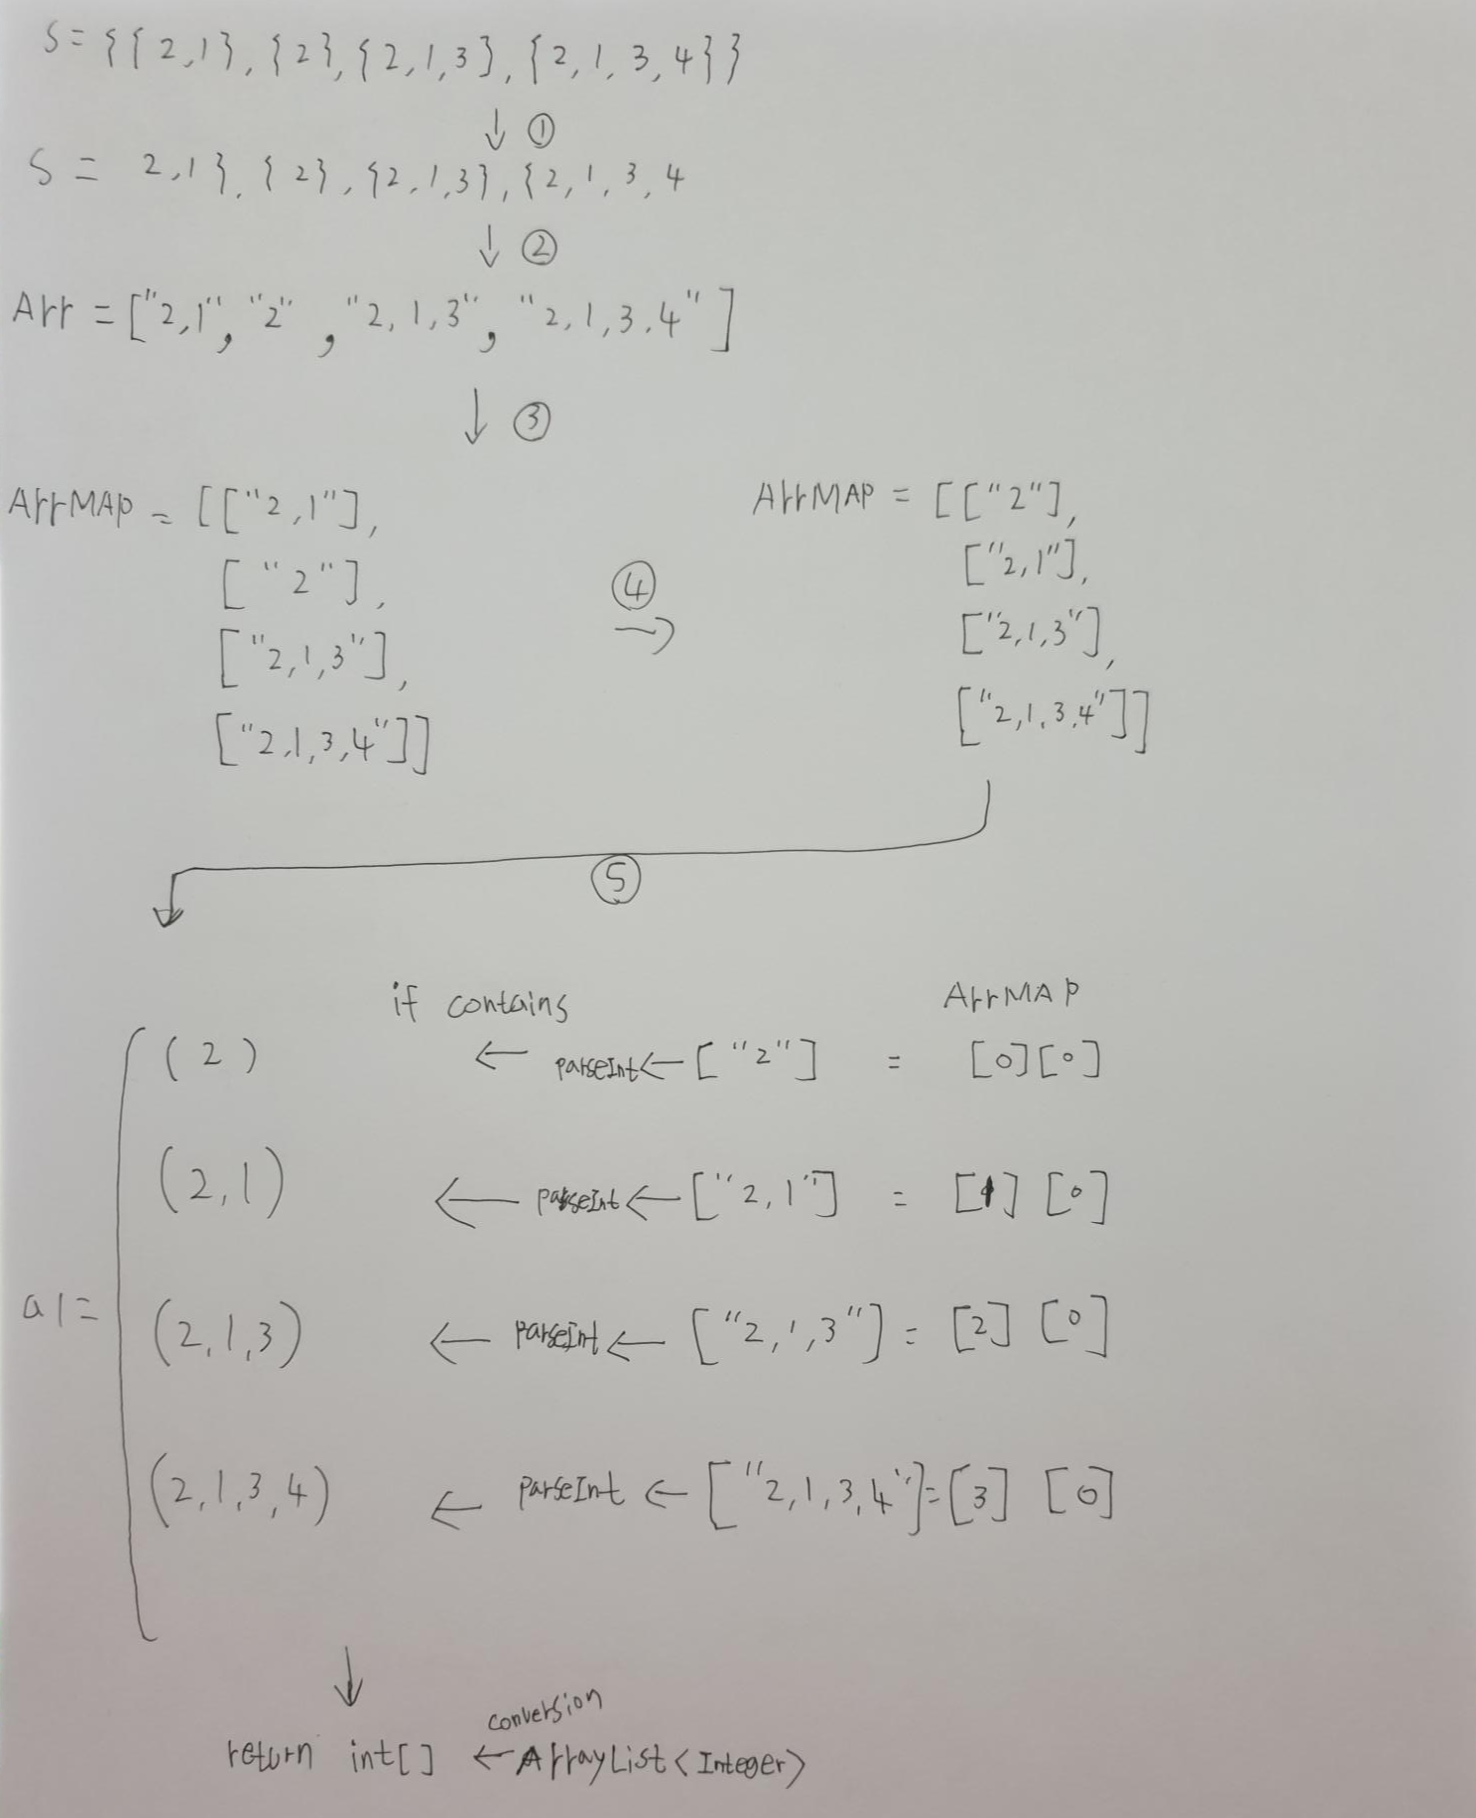 S = {{2,1}, {2}, {2,1,3}, {2,1,3,4}}
↓ ①
S = 2,1}, {2}, {2,1,3}, {2,1,3,4
↓ ②
Arr = ["2,1", "2", "2,1,3", "2,1,3,4"]
↓ ③
ArrMAP = [["2,1"],
["2"],
["2,1,3"],
["2,1,3,4"]]
④
→
ArrMAP = [["2"],
["2,1"],
["2,1,3"],
["2,1,3,4"]]
⑤
if contains ArrMAP
(2) ← parseInt ← ["2"] = [0][0]
(2,1) ← parseInt ← ["2,1"] = [1][0]
a1 =
(2,1,3) ← parseInt ← ["2,1,3"] = [2][0]
(2,1,3,4) ← parseInt ← ["2,1,3,4"] = [3][0]
↓
conversion
return int[] ← ArrayList<Integer>